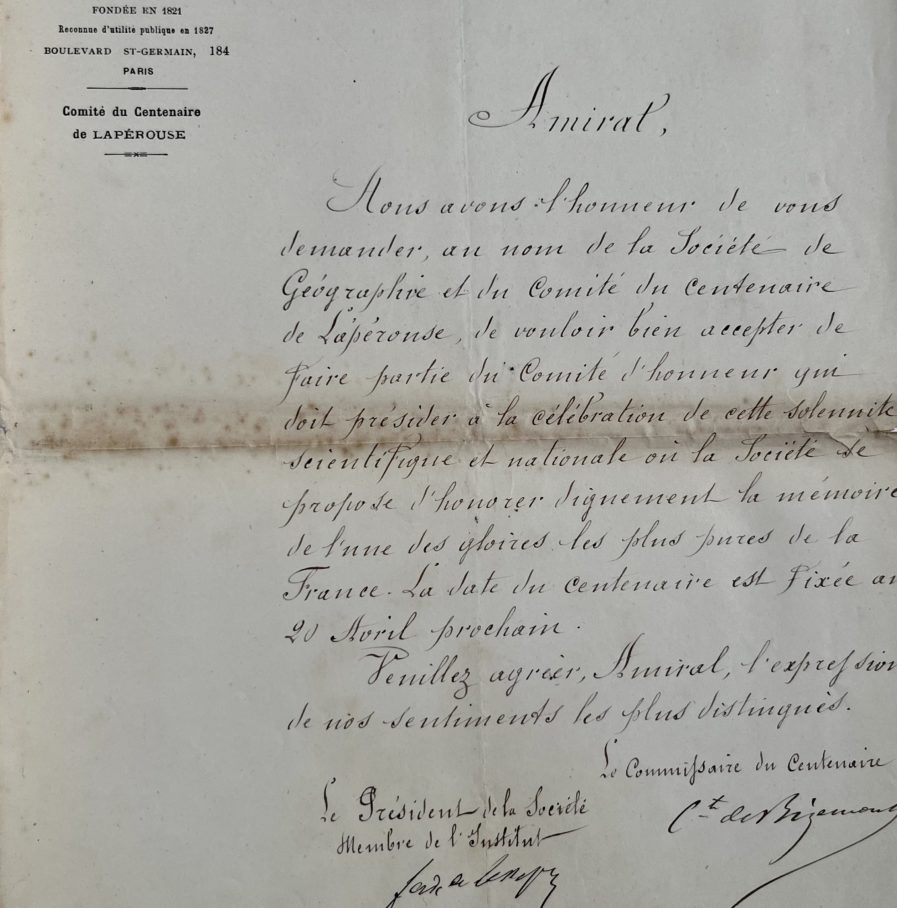 FONDÉE EN 1821
Reconnue d'utilité publique en 1827
BOULEVARD ST-GERMAIN, 184
PARIS
Comité du Centenaire
de LAPÉROUSE
Amiral,
Nous avons l'honneur de vous
demander, au nom de la Société de
Géographie et du Comité du Centenaire
de Lapérouse, de vouloir bien accepter de
faire partie du Comité d'honneur qui
doit présider à la célébration de cette solennité
scientifique et nationale où la Société se
propose d'honorer dignement la mémoire
de l'une des gloires les plus pures de la
France. La date du centenaire est fixée au
20 Avril prochain.
Veuillez agréer, Amiral, l'expression
de nos sentiments les plus distingués.
Le Commissaire du Centenaire
Ct de Bizemont
Le Président de la Société
Membre de l'Institut